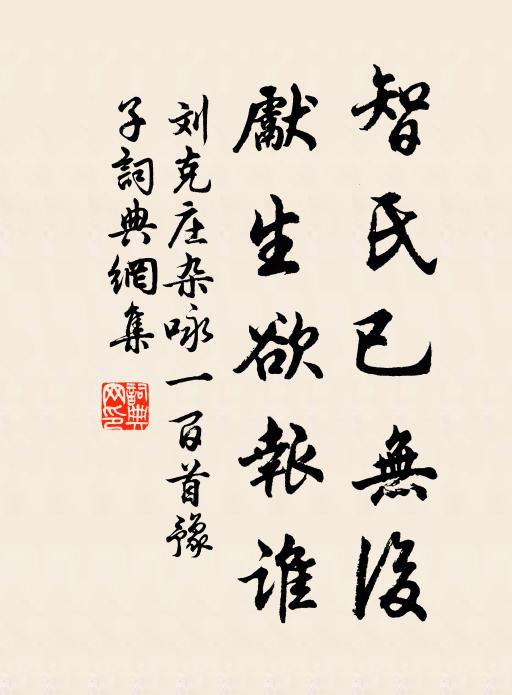 智氏已無後
獻生欲報誰
刘克庄杂咏一百首豫
子詞典網集
詞典网印